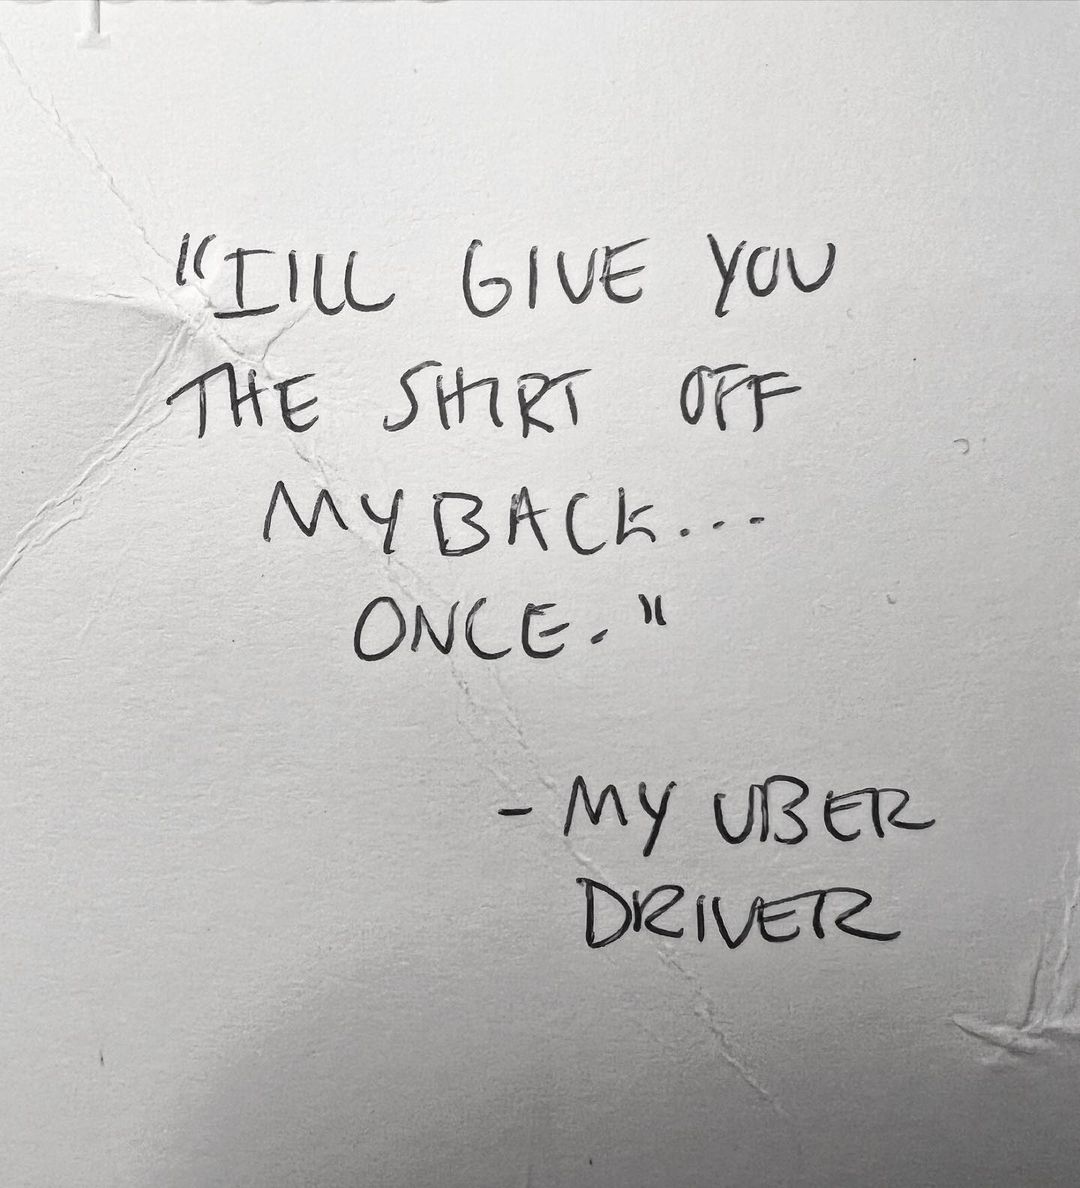 "I'LL GIVE YOU
THE SHIRT OFF
MY BACK...
ONCE."
- MY UBER
DRIVER